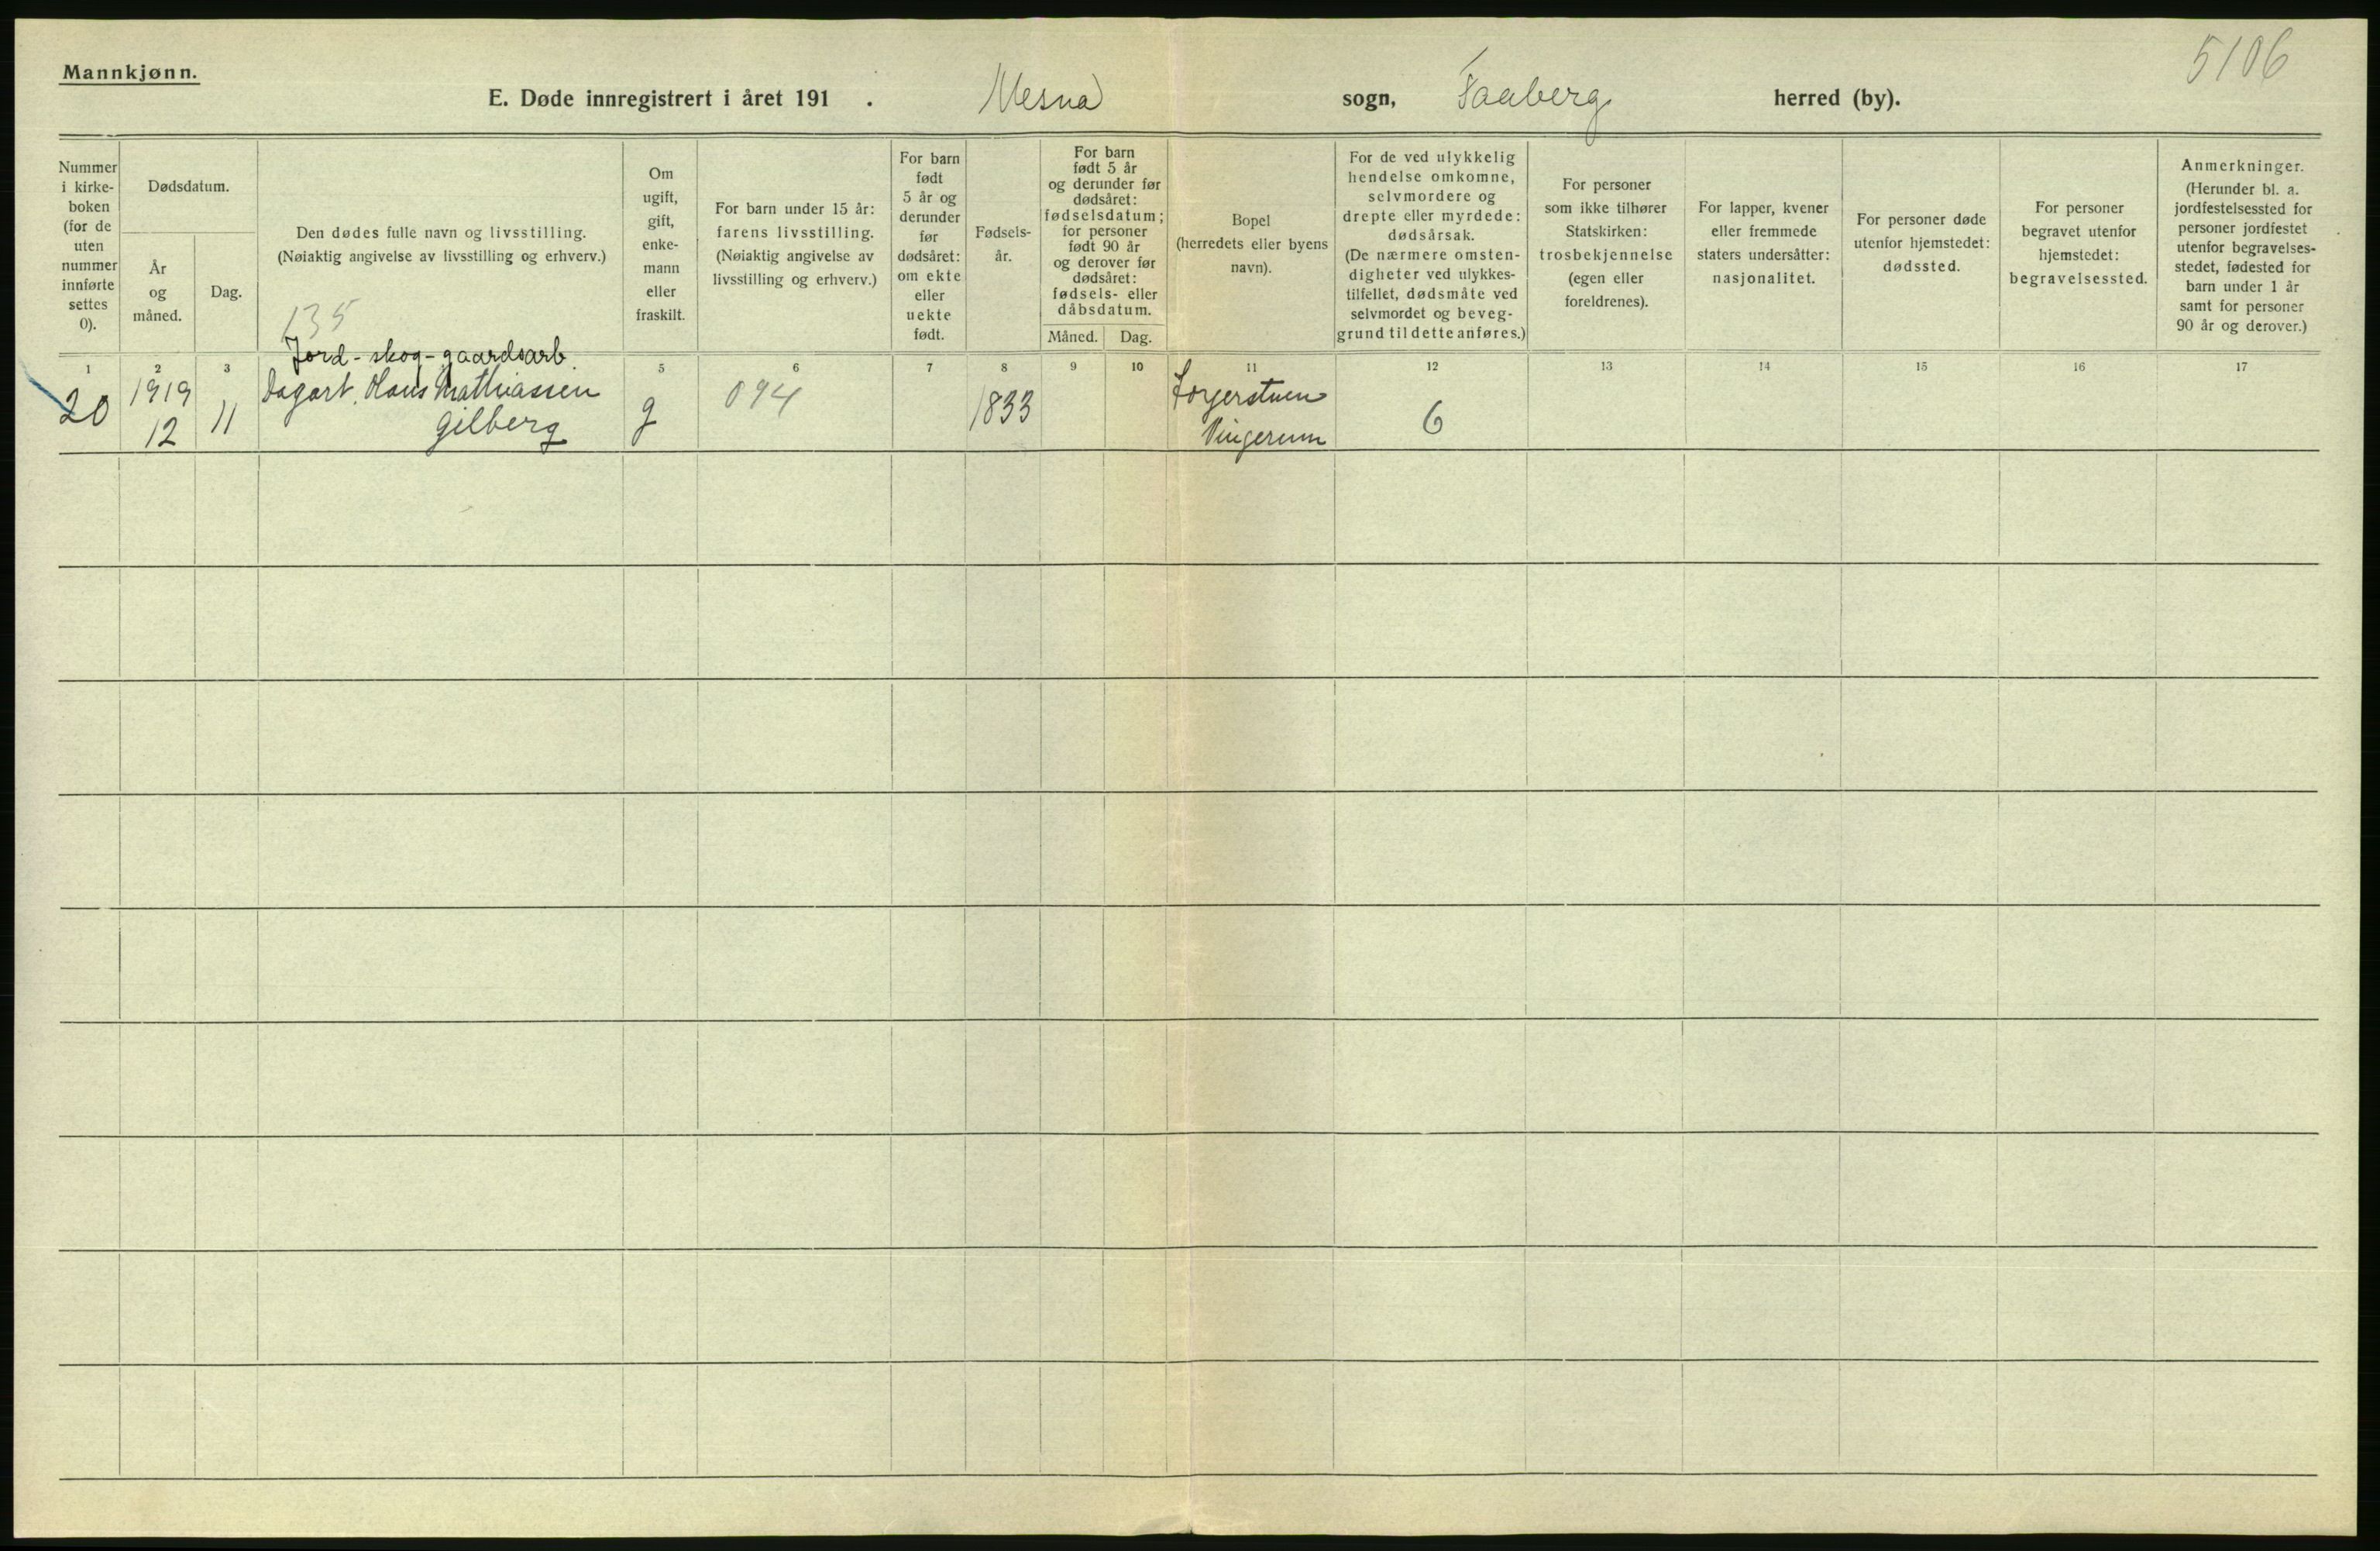 5106
Mannkjønn.
E. Døde innregistrert i året 191 . Mesna sogn, Faaberg herred (by).
Nummer
i kirke-
boken
(for de
uten
nummer
innførte
settes
0).
Dødsdatum.
År
og
måned.
Dag.
Den dødes fulle navn og livsstilling.
(Nøiaktig angivelse av livsstilling og erhverv.)
Om
ugift,
gift,
enke-
mann
eller
fraskilt.
For barn under 15 år:
farens livsstilling.
(Nøiaktig angivelse av
livsstilling og erhverv.)
For barn
født
5 år og
derunder
før
dødsåret:
om ekte
eller
uekte
født.
Fødsels-
år.
For barn
født 5 år
og derunder før
dødsåret:
fødselsdatum;
for personer
født 90 år
og derover før
dødsåret:
fødsels- eller
dåbsdatum.
Måned. Dag.
Bopel
(herredets eller byens
navn).
For de ved ulykkelig
hendelse omkomne,
selvmordere og
drepte eller myrdede:
dødsårsak.
(De nærmere omsten-
digheter ved ulykkes-
tilfellet, dødsmåte ved
selvmordet og beveg-
grund til dette anføres.)
For personer
som ikke tilhører
Statskirken:
trosbekjennelse
(egen eller
foreldrenes).
For lapper, kvener
eller fremmede
staters undersåtter:
nasjonalitet.
For personer døde
utenfor hjemstedet:
dødssted.
For personer
begravet utenfor
hjemstedet:
begravelsessted.
Anmerkninger.
(Herunder bl. a.
jordfestelsessted for
personer jordfestet
utenfor begravelses-
stedet, fødested for
barn under 1 år
samt for personer
90 år og derover.)
135
Jord-skog-gaardsarb.
1 2 3 5 6 7 8 9 10 11 12 13 14 15 16 17
20 1919 11 Dagarb. Hans Mathiassen g 094 1833 6
12 Gilberg Vingerum